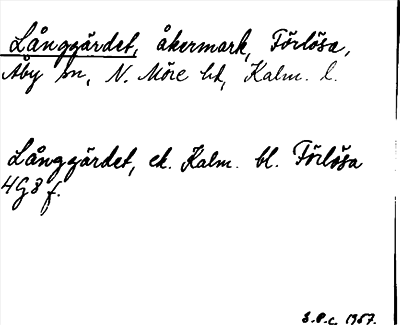 Långgärdet, åkermark, Förlösa,
Åby sn, N. Möre hd, Kalm. l.
Långgärdet, ek. Kalm. bl. Förlösa
4G8f.
S.P.c. 1957.